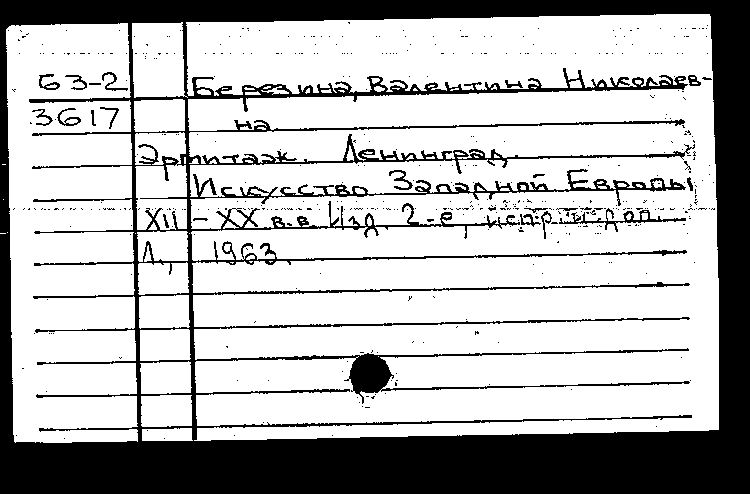 63-2 Березина, Валентина Николаев-
3617 на
Эрмитаж. Ленинград.
Искусство Западной Европы
XII - XX в.в. Изд. 2-е, испр. и доп.
Л., 1963.